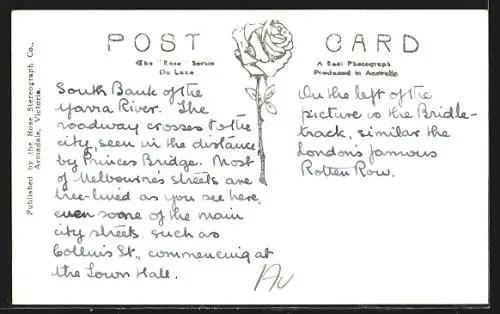 POST CARD
The "Rose" Series
De Luxe
A Real Photograph
Produced in Australia
Published by the Rose Stereograph Co.,
Armadale, Victoria.
South Bank of the
Yarra River. The
roadway crosses to the
city, seen in the distance
by Princes Bridge. Most
of Melbourne's streets are
tree-lined as you see here,
even some of the main
city streets such as
Collins St., commencing at
the Town Hall.
On the left of the
picture is the Bridle-
track, similar the
London's famous
Rotten Row.
Au